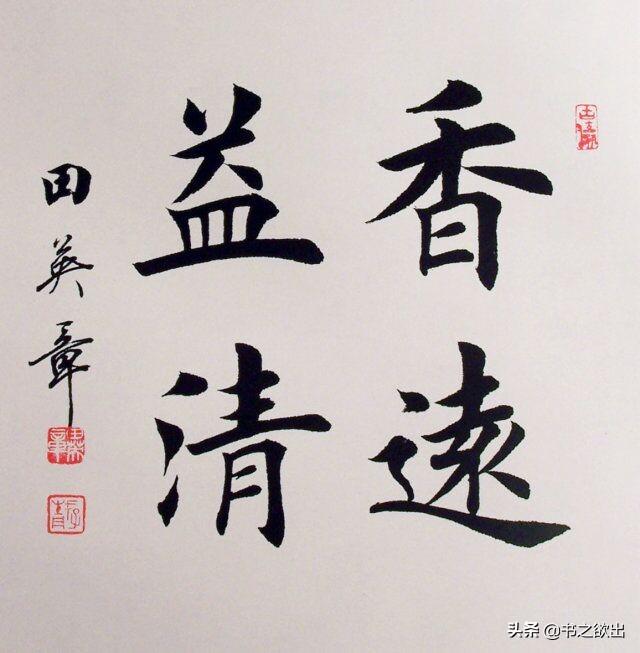 香遠
益清
田英章
头条 @书之欲出